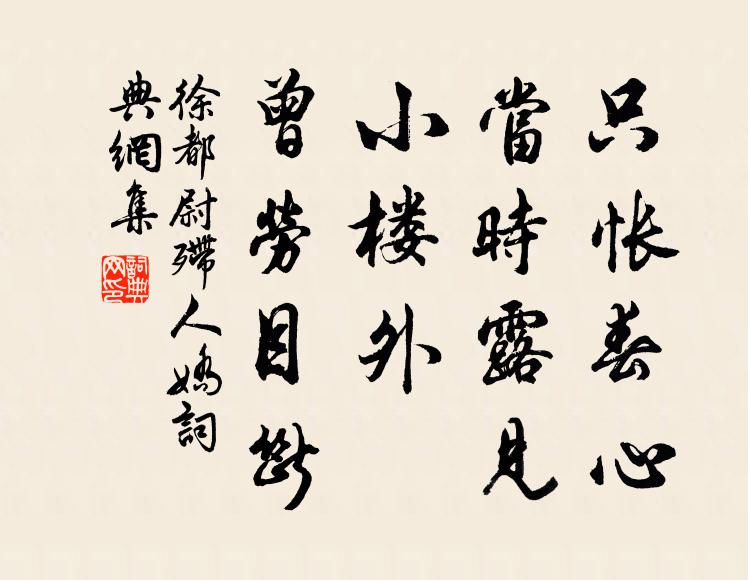 只怅春心
當時露見
小楼外
曾勞目斷
徐都尉殢人嬌詞
典網集
詞典网印